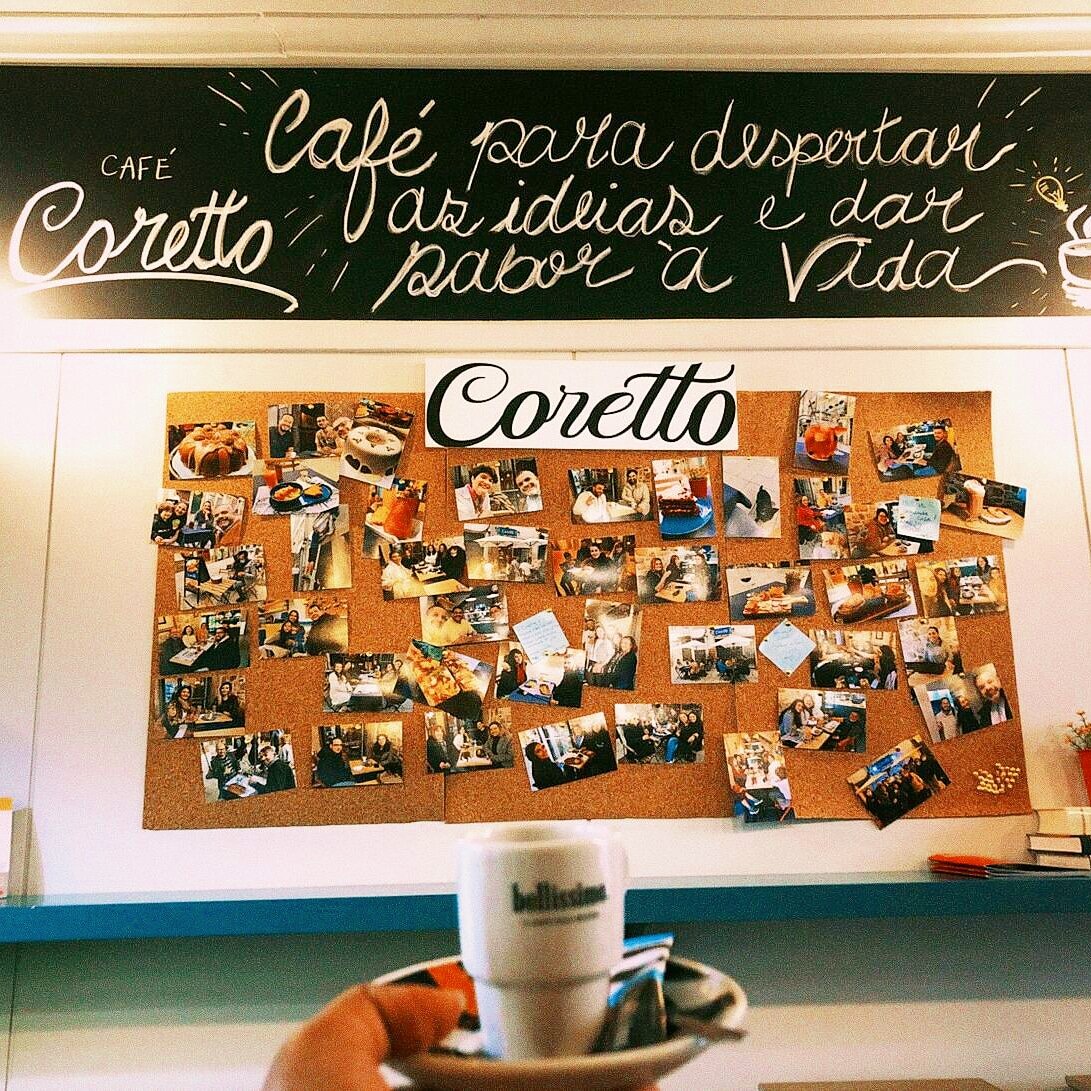 CAFÉ
Coretto
Café para despertar
as ideias e dar
sabor à Vida
Coretto
bellissimo